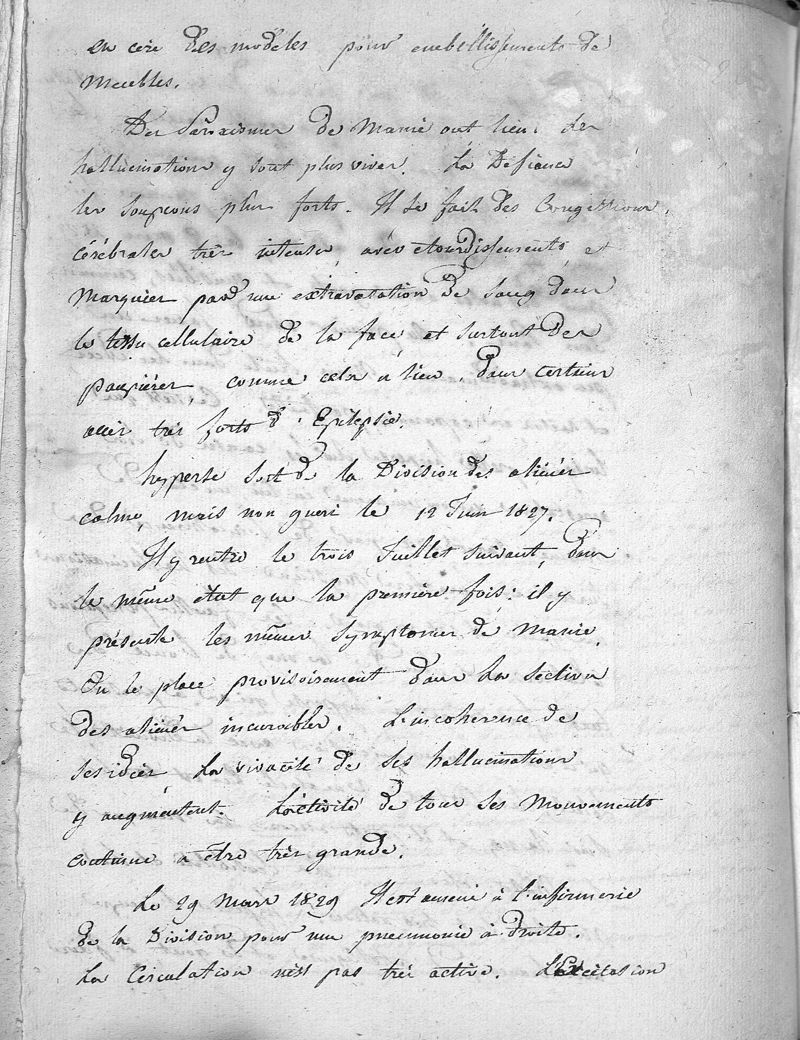 en cire des modeles pour embellissements de
meubles.
Des Paroxismes de Manie ont lieu: les
hallucinations y sont plus vives. La Defiance
les soupcons plus forts. Il se fait des Congestions
cérébrales très intenses, avec etourdissements, et
Marquées par une extravasation de sang dans
le tissu cellulaire de la face et surtout des
paupières, comme cela a lieu, dans certains
accès très forts d'Epilepsie.
hyperte sort de la Division des aliénés
calme, mais non gueri le 12 Juin 1827.
Il y rentre le trois Juillet suivant, dans
le même état que la première fois: il y
présente les mêmes symptomes de Manie.
On le place provisoirement dans la section
des aliénés incurables. L'incoherence de
ses idées, la vivacité de ses hallucinations
y augmentent. L'activité de tous ses mouvements
continue à être très grande.
Le 29 Mars 1829 Il est amené à l'infirmerie
de la Division pour une pneumonie à droite.
La Circulation n'est pas très active. L'Excitation